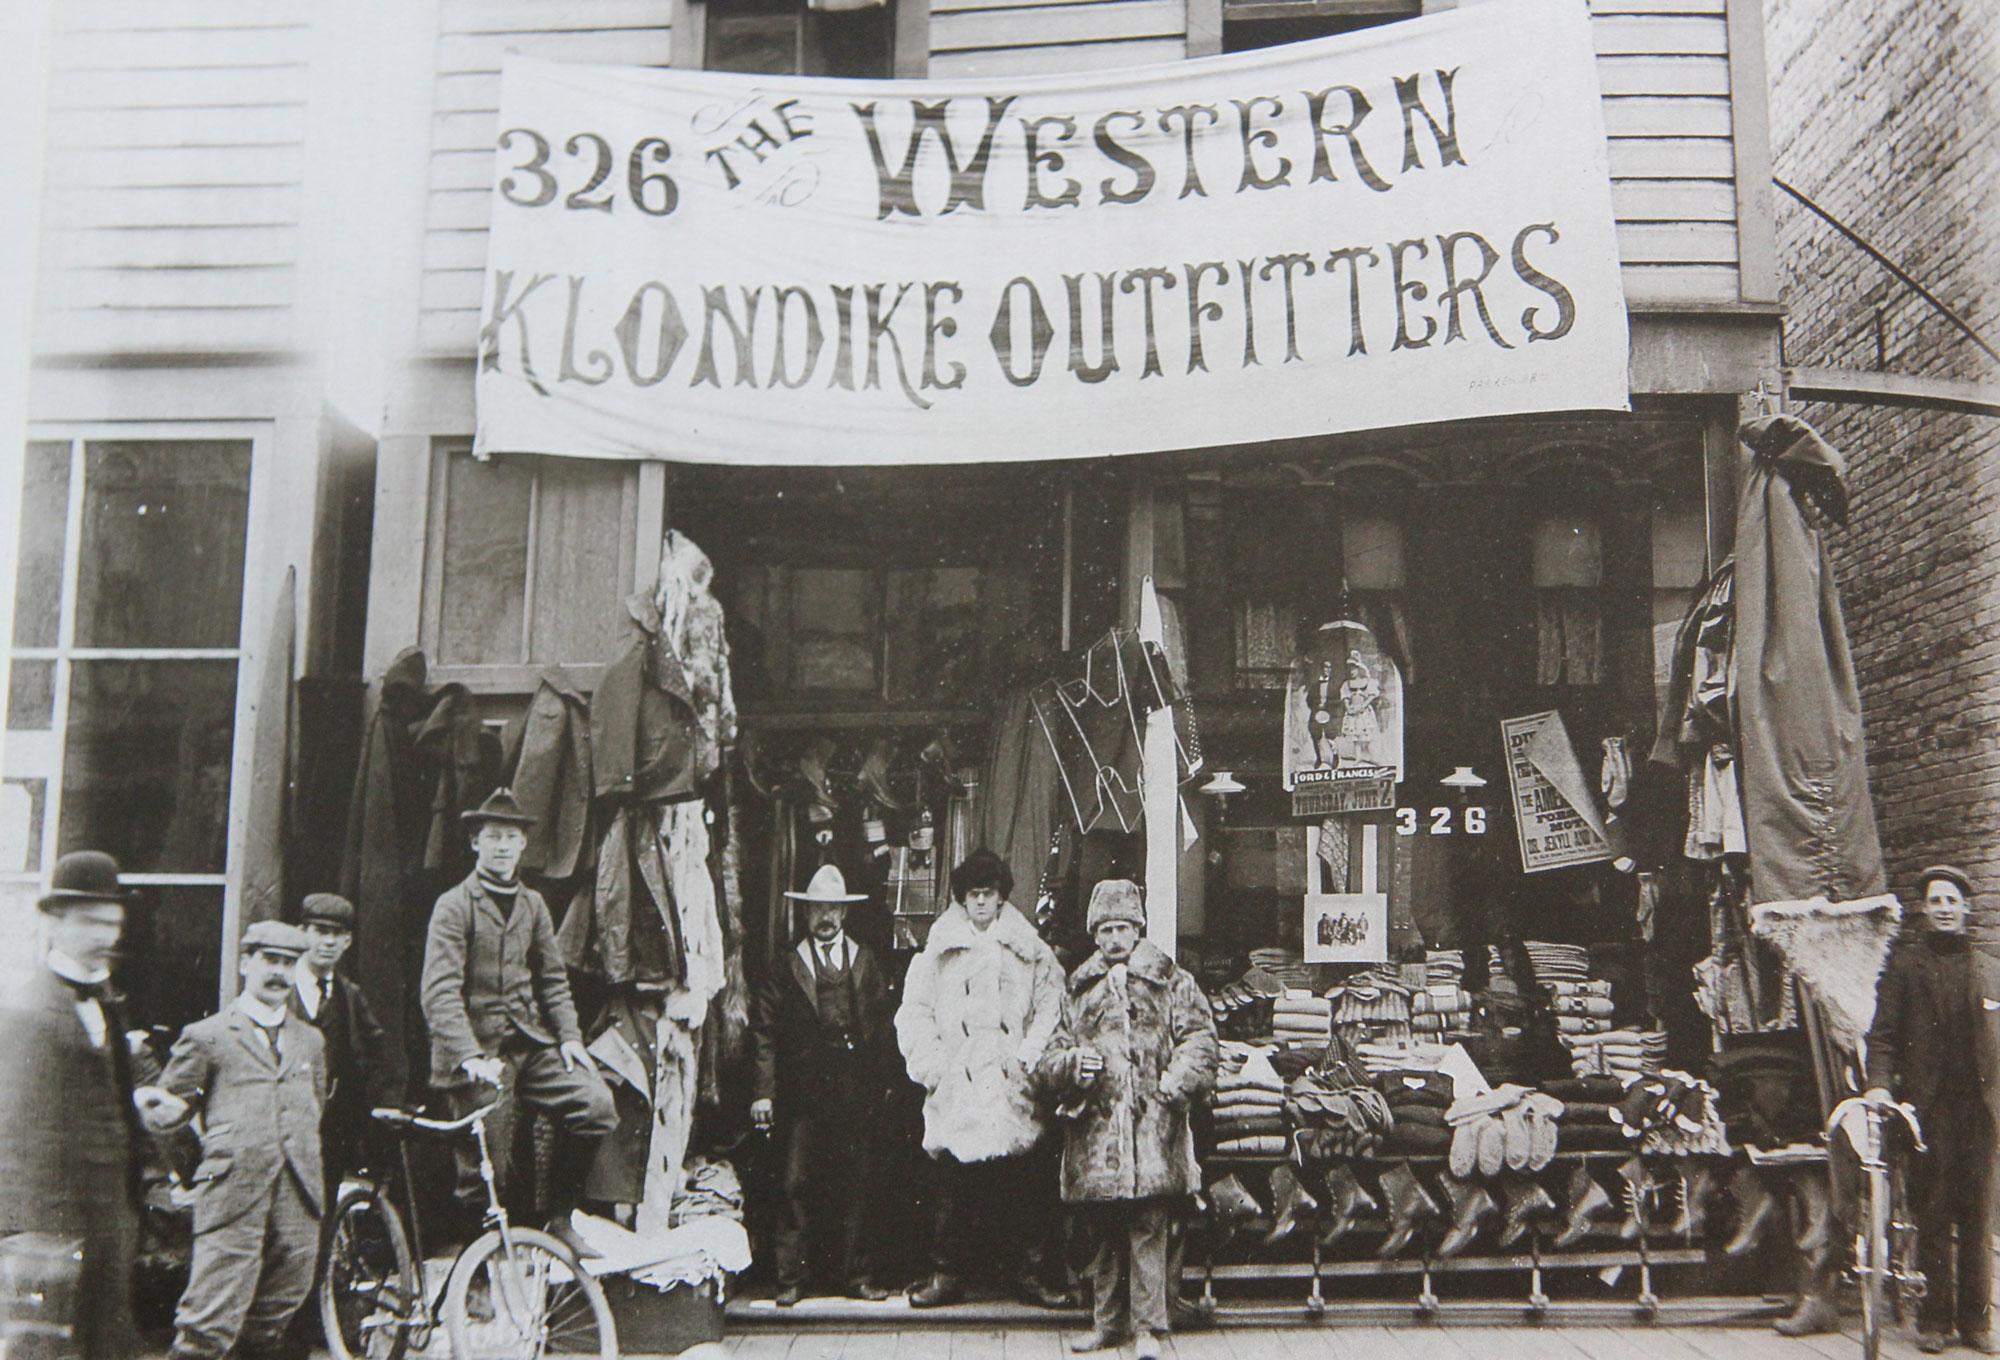 326 THE WESTERN
KLONDIKE OUTFITTERS
FORD & FRANCIS
THURSDAY, JUNE 2
326
THE
AMERI
DR. JEKYLL AND